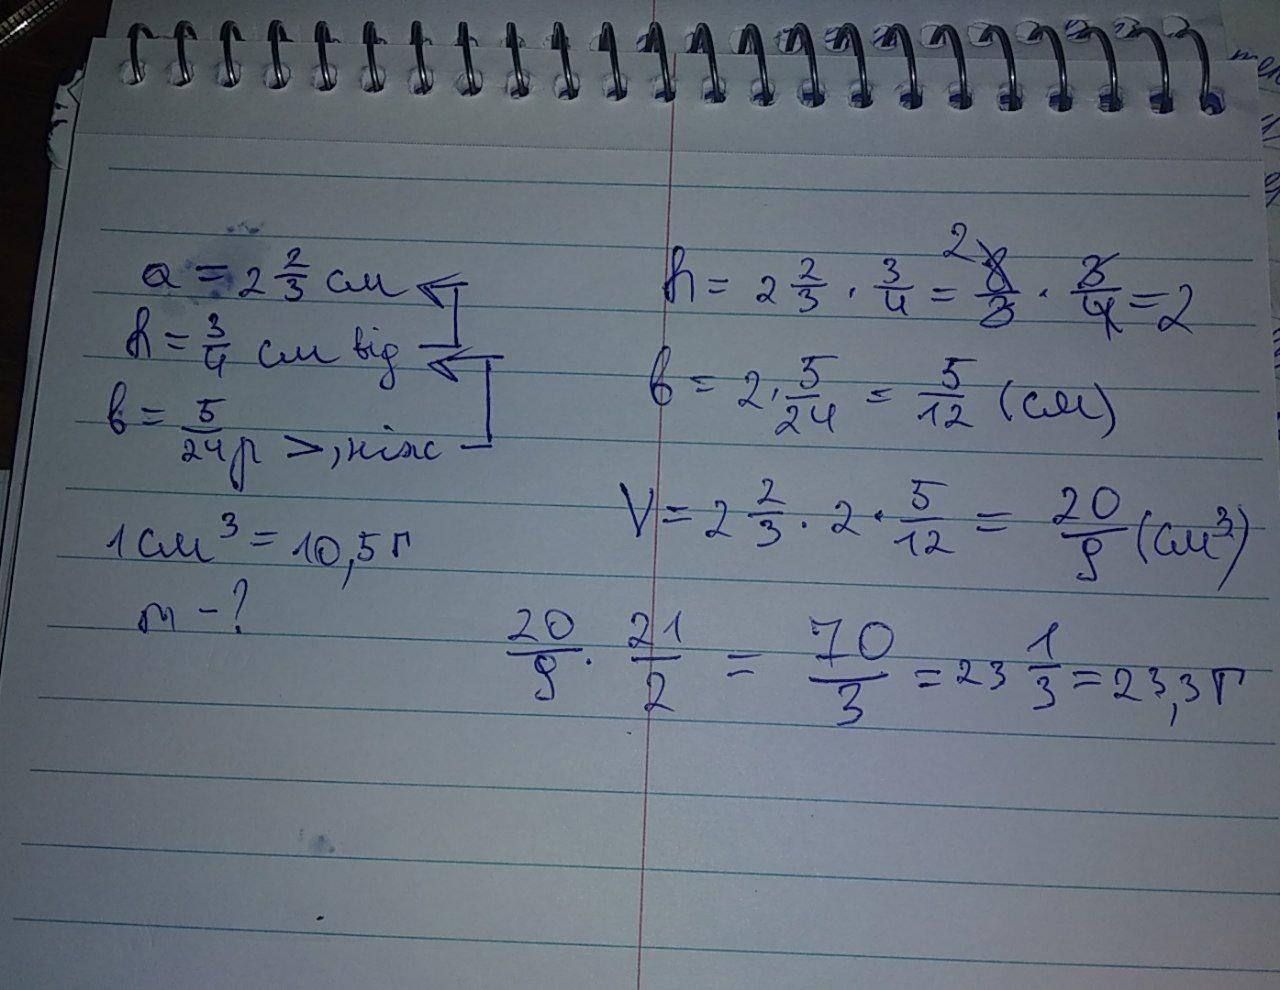 a = 2 2/3 см
h = 3/4 см від
b = 5/24 р >, ніж
1 см³ = 10,5 г
m - ?
h = 2 2/3 · 3/4 = 8/3 · 3/4 = 2
b = 2 · 5/24 = 5/12 (см)
V = 2 2/3 · 2 · 5/12 = 20/9 (см³)
20/9 · 21/2 = 70/3 = 23 1/3 = 23,3 г